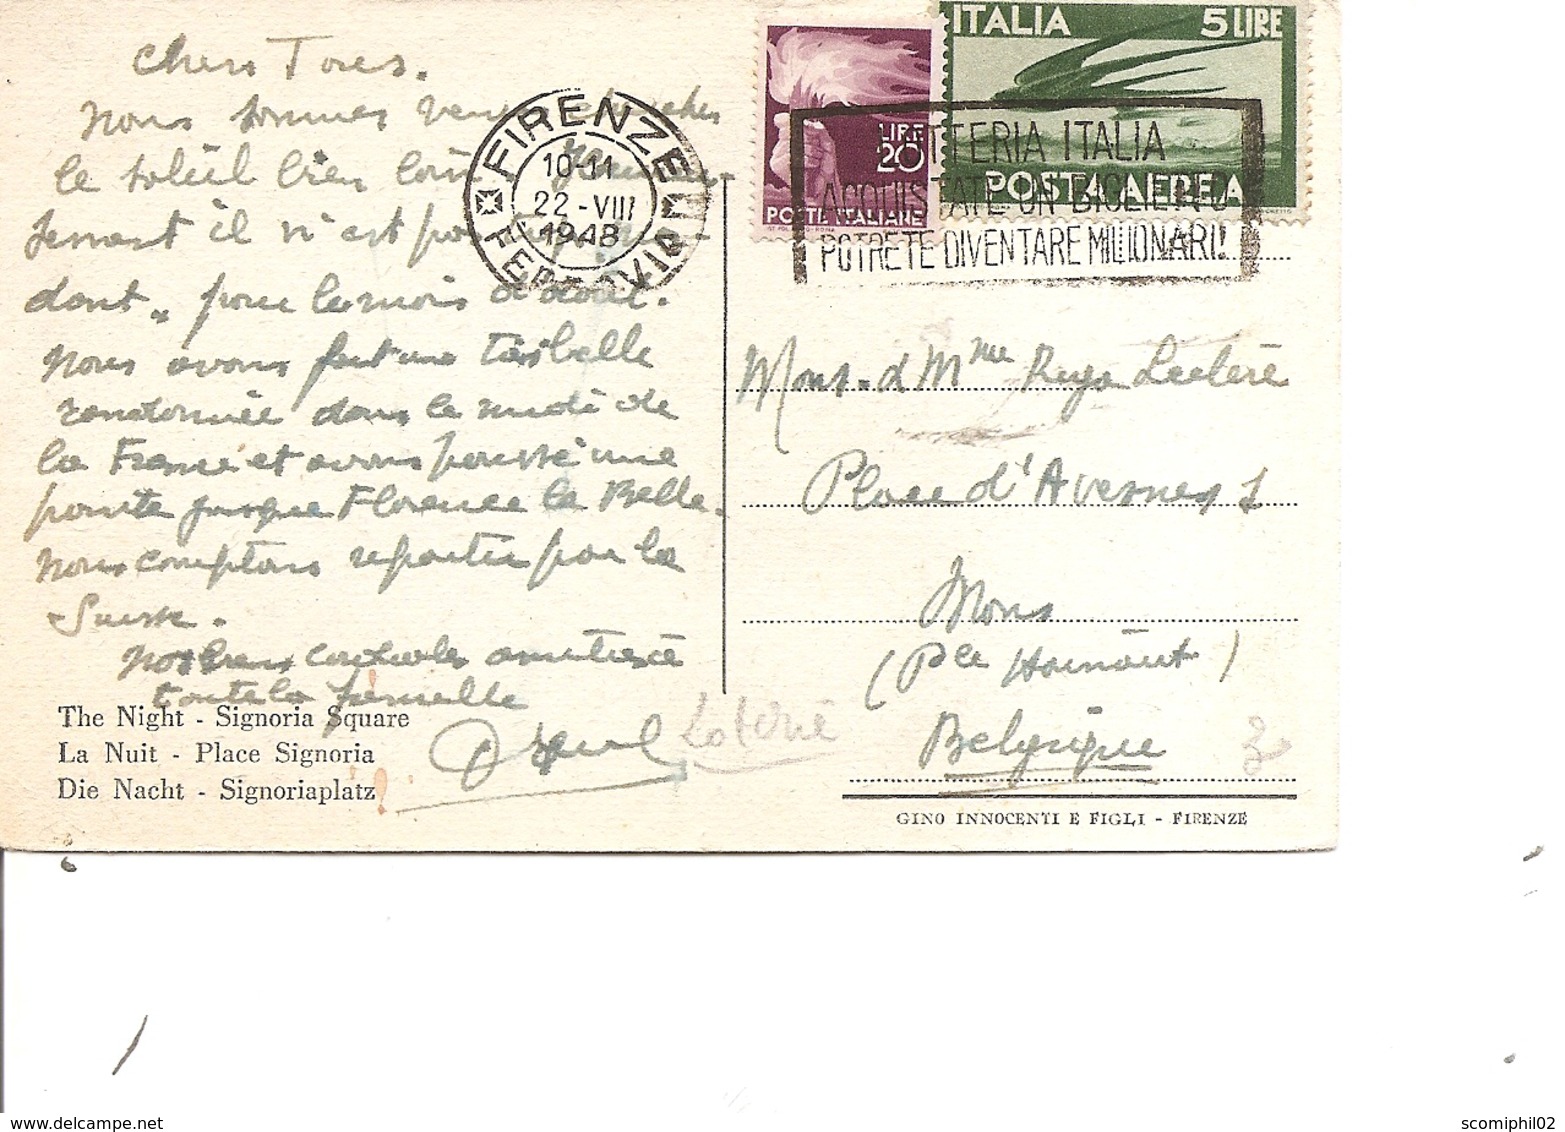 Chers Tous.
Nous sommes venus chercher
le soleil bien loin
il n'est pas
dant. pour le mois d'août.
Nous avons fait une très belle
randonnée dans le midi de
la France et avons poussé une
pointe jusque Florence la Belle.
Nous comptons repartir par la
Suisse.
Nos bien cordiales amitiés à
toute la famille
The Night - Signoria Square
La Nuit - Place Signoria
Die Nacht - Signoriaplatz
FIRENZE
10-11
22-VIII
1948
FERROVIA
LIRE
20
POSTE ITALIANE
ITALIA 5 LIRE
POSTA AEREA
LOTTERIA ITALIA
ACQUISTATE UN BIGLIETTO
POTRETE DIVENTARE MILIONARI!
Mons. & Mme Leclère
Place d'Avesnes 1
Mons
(Pce Hainaut)
Belgique
Loterie
GINO INNOCENTI E FIGLI - FIRENZE
scomiphil02